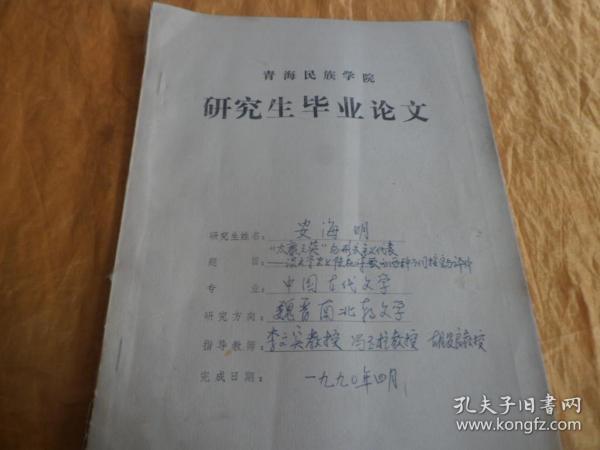 青海民族学院
研究生毕业论文
研究生姓名：安海明
"太康之英"与形式主义代表
题 目：——谈文学史上陆机评价的两种不同
专 业：中国古代文学
研究方向：魏晋南北朝文学
指导教师：李文实教授 冯 教授 胡 教授
完成日期：一九九〇年四月
孔夫子旧书网
www.kongfz.com